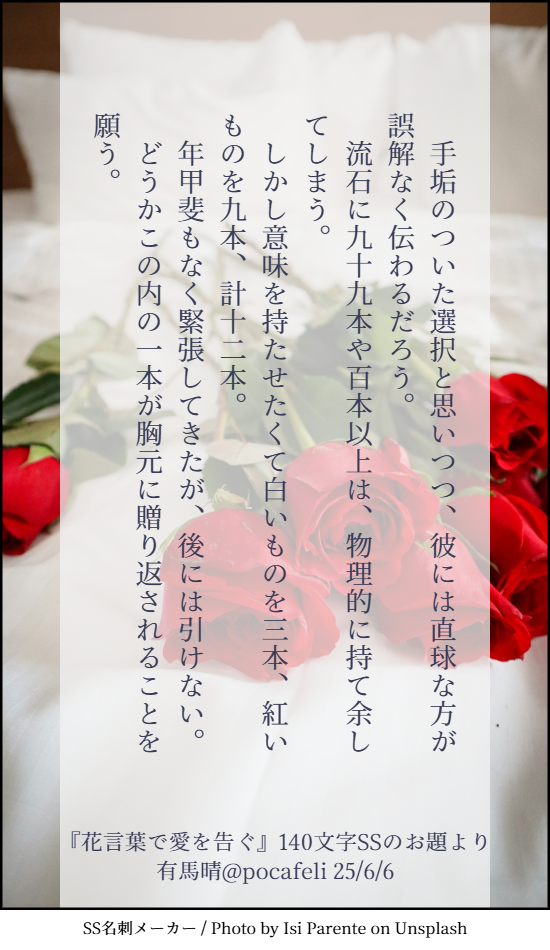 手垢のついた選択と思いつつ、彼には直球な方が
誤解なく伝わるだろう。
流石に九十九本や百本以上は、物理的に持て余し
てしまう。
しかし意味を持たせたくて白いものを三本、紅い
ものを九本、計十二本。
年甲斐もなく緊張してきたが、後には引けない。
どうかこの内の一本が胸元に贈り返されることを
願う。
『花言葉で愛を告ぐ』140文字SSのお題より
有馬晴@pocafeli 25/6/6
SS名刺メーカー / Photo by Isi Parente on Unsplash